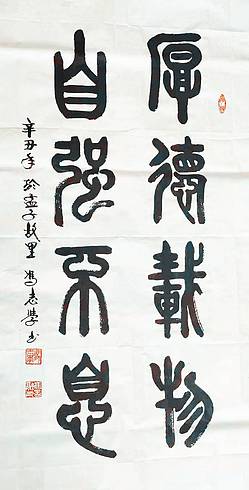 厚德載物
自强不息
辛丑年於孟子故里馮志學書